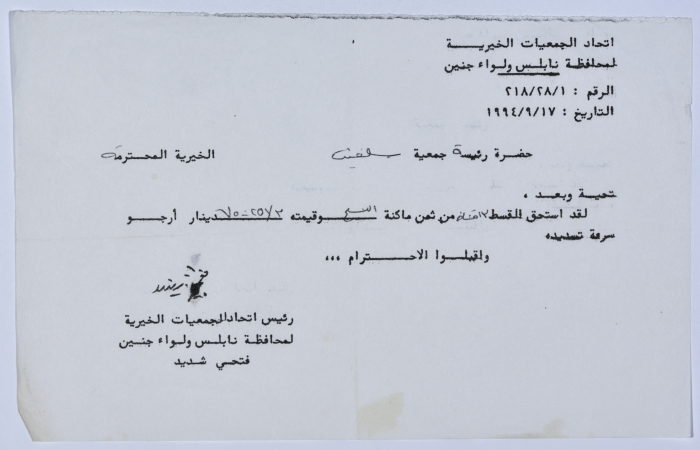 اتحاد الجمعيات الخيرية
لمحافظة نابلس ولواء جنين
الرقم : ٢١٨/٢٨/١
التاريخ : ١٩٩٤/٩/١٧
حضرة رئيسة جمعية سلفيت الخيرية المحترمة
تحية وبعد ،
لقد استحق القسط من ثمن ماكنة وقيمته دينار أرجو
سرعة تسديده
واقبلوا الاحترام ،،،
رئيس اتحاد الجمعيات الخيرية
لمحافظة نابلس ولواء جنين
فتحي شديد